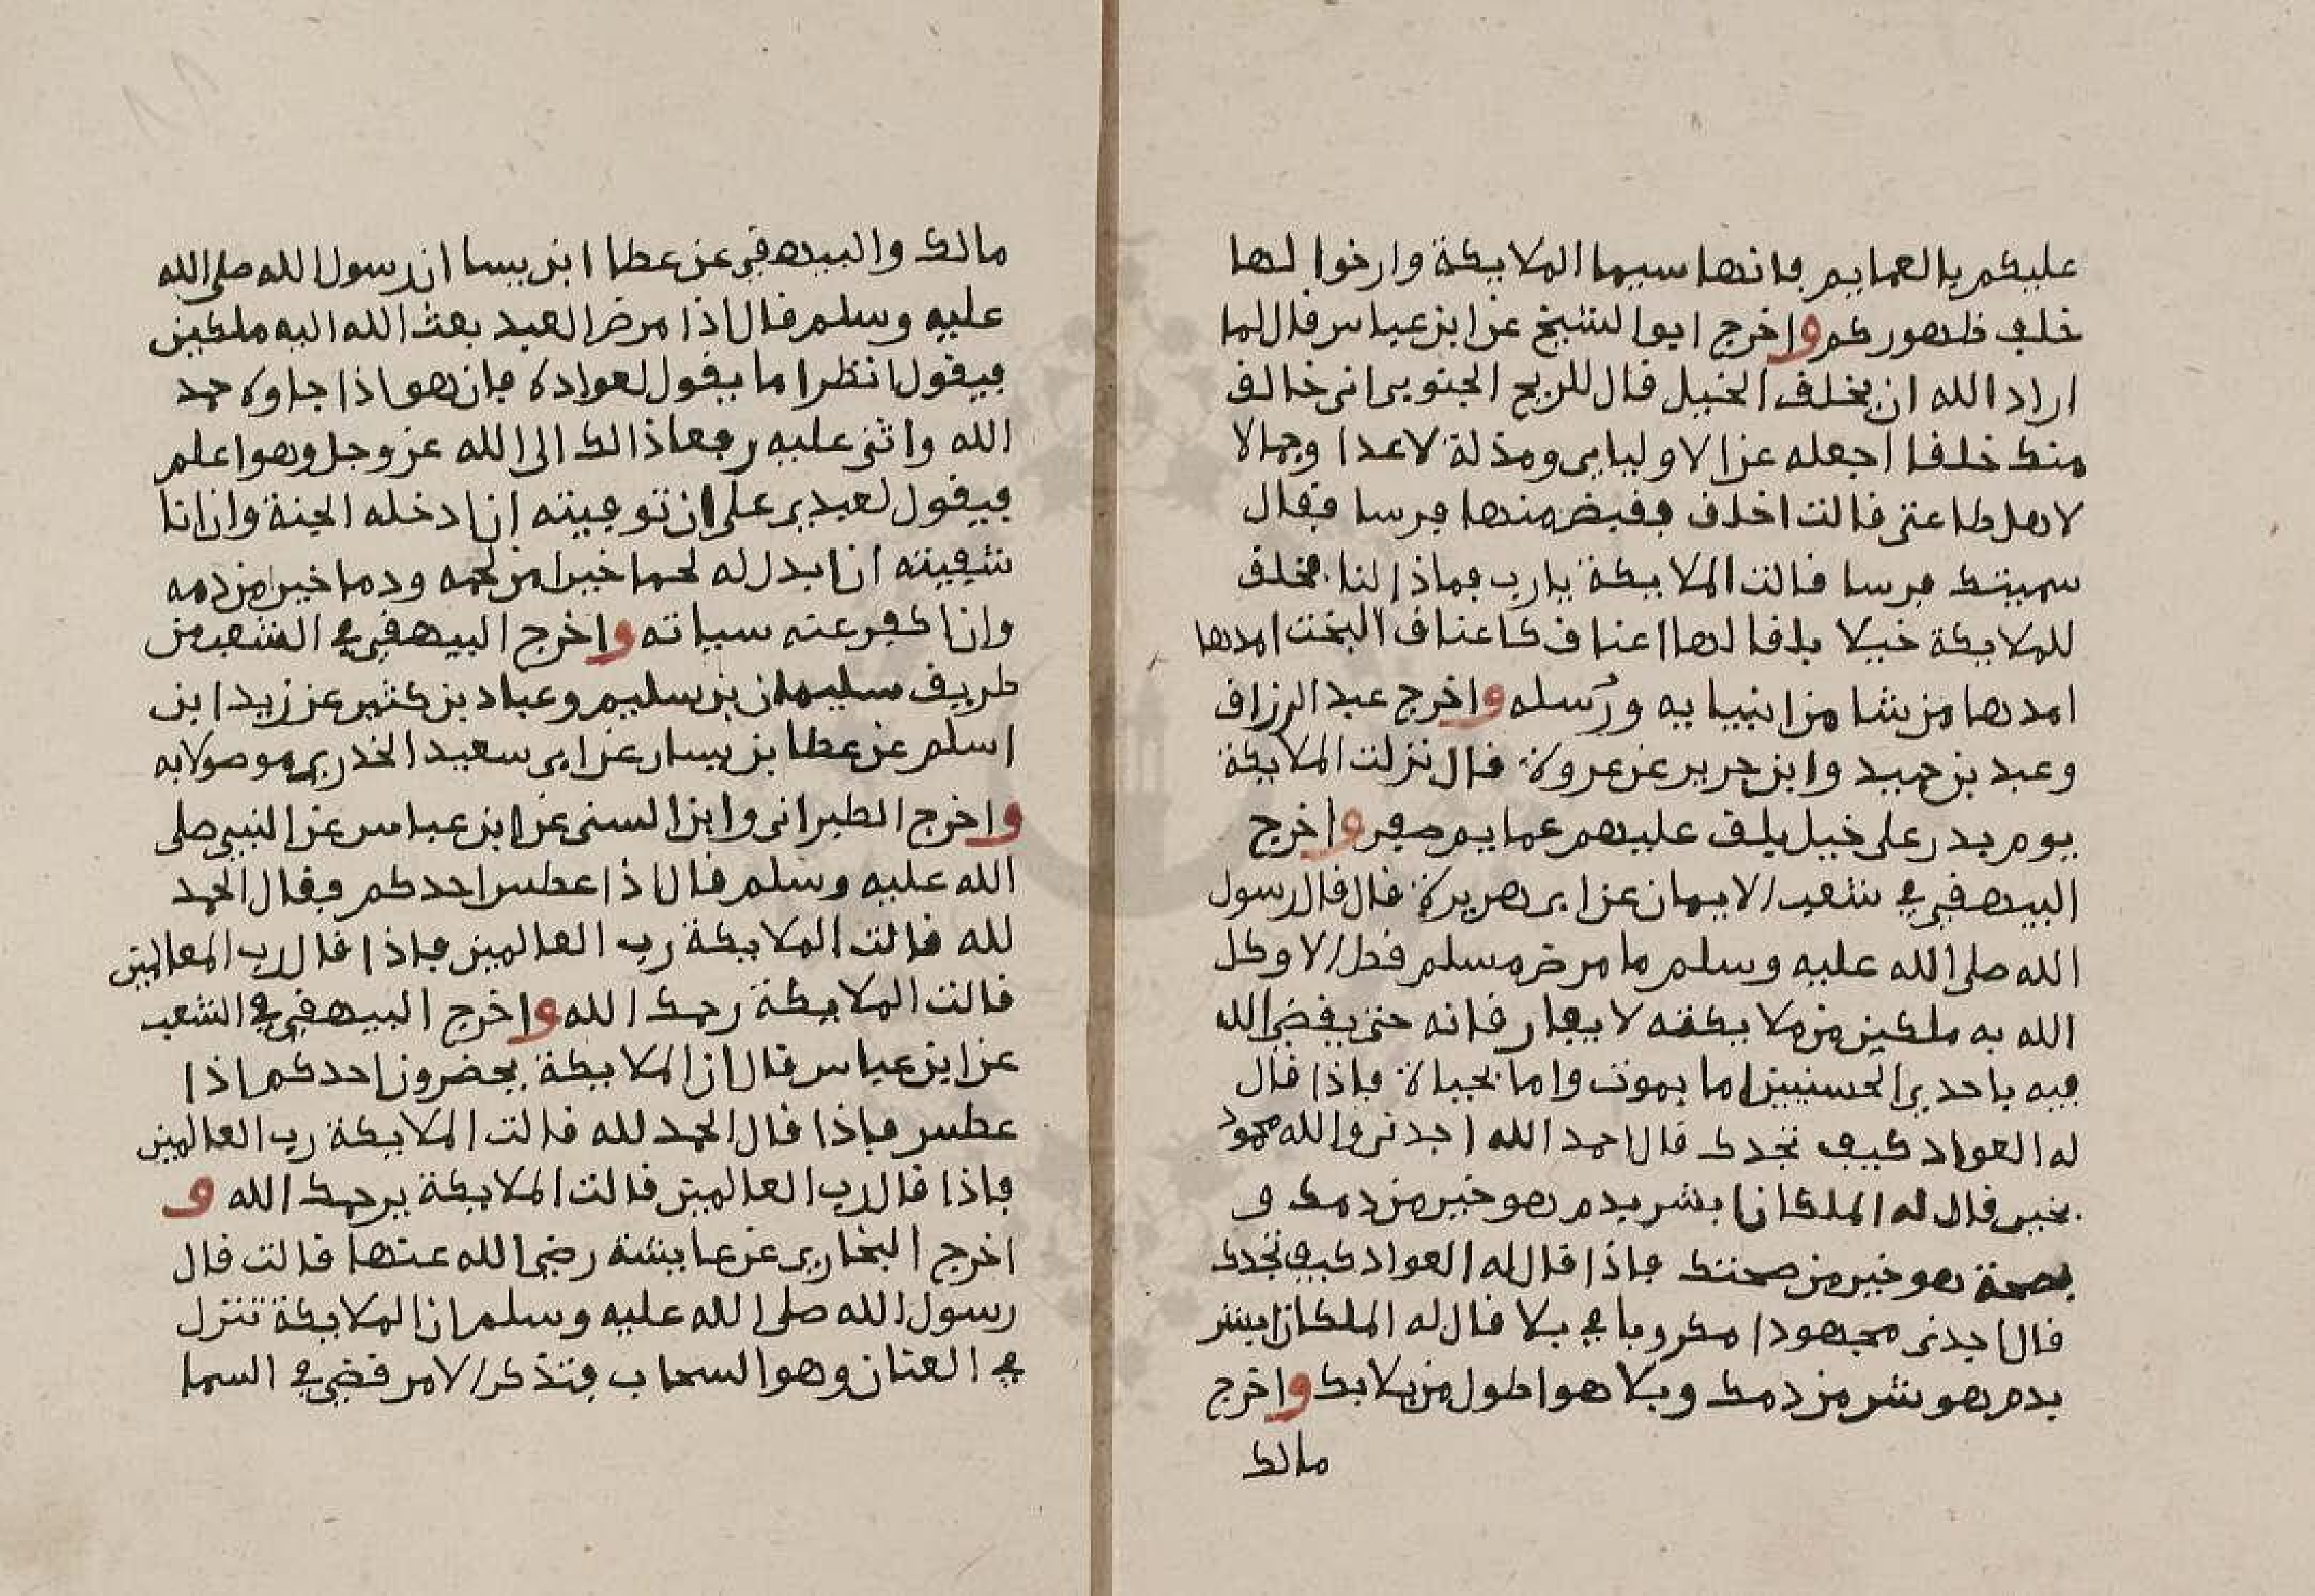 عليكم بالعمايم فانها سيما الملايكة وارخوا لها
خلف ظهوركم واخرج ابوا لشيخ عن ابن عباس قال لما
اراد الله ان يخلف الخيل قال للريح الجنوبى انى خالق
منك خلقا اجعله عزا لاوليايى ومذلة لاعدا وجمالا
لاهل طاعتى قالت اخلف فقبض منها فرسا فقال
سميتك فرسا قالت الملايكة يارب فماذا لنا فخلق
للملايكة خيلا بلقا لها اعناق كاعناق البخت امدها
امدها من شا من انبيايه ورسله واخرج عبد الرزاق
وعبد بن حميد وابن جرير عن عروة قال نزلت الملايكة
يوم بدر على خيل بلق عليهم عمايم صفر واخرج
البيهقى في شعب الايمان عن ابى هريرة قال قال رسول
الله صلى الله عليه وسلم ما مرض مسلم قط الا وكل
الله به ملكين من ملايكته لا يفارقانه حتى يقضى الله
فيه باحدى الحسنيين اما بموت واما بحياة فاذا قال
له العواد كيف تجدك قال احمد الله اجدنى والله محمود
بخير قال له الملكان ابشر بدم هو خير من دمك و
بصحة هو خير من صحتك فاذا قال له العواد كيف تجدك
قال اجدنى مجهودا مكروبا في بلا قال له الملكان ابشر
بدم هو شر من دمك وبلا هو اطول من بلايك واخرج
مالك
مالك والبيهقى عن عطا ابن يسا ان رسول الله صلى الله
عليه وسلم قال اذا مرض العبد بعث الله اليه ملكين
فيقول انظرا ما يقول لعواده فان هو اذا جاوه حمد
الله واثنى عليه رفعا ذالك الى الله عز وجل وهو اعلم
فيقول لعبدى على ان توفيته ان ادخله الجنة وان انا
شفيته ان ابدل له لحما خيرا من لحمه ودما خير من دمه
وان اكفر عنه سياته واخرج البيهقى في الشعب من
طريق سليمان بن سليم وعباد بن كثير عن زيد ابن
اسلم عن عطا بن يسار عن ابى سعيد الخدرى موصولا به
واخرج الطبرانى وابن السنى عن ابن عباس عن النبى صلى
الله عليه وسلم قال اذا عطس احدكم فقال الحمد
لله قالت الملايكة رب العالمين فاذا قال رب المعالمين
قالت الملايكة رحمك الله واخرج البيهقى في الشعب
عن ابن عباس قال ان الملايكة يحضرون احدكم اذا
عطس فاذا قال الحمد لله قالت الملايكة رب العالمين
فاذا قال رب العالمين قالت الملايكة يرحمك الله و
اخرج البخارى عن عايشة رضى الله عنها قالت قال
رسول الله صلى الله عليه وسلم ان الملايكة تنزل
في العنان وهو السحاب فتذكر الامر قضى في السما